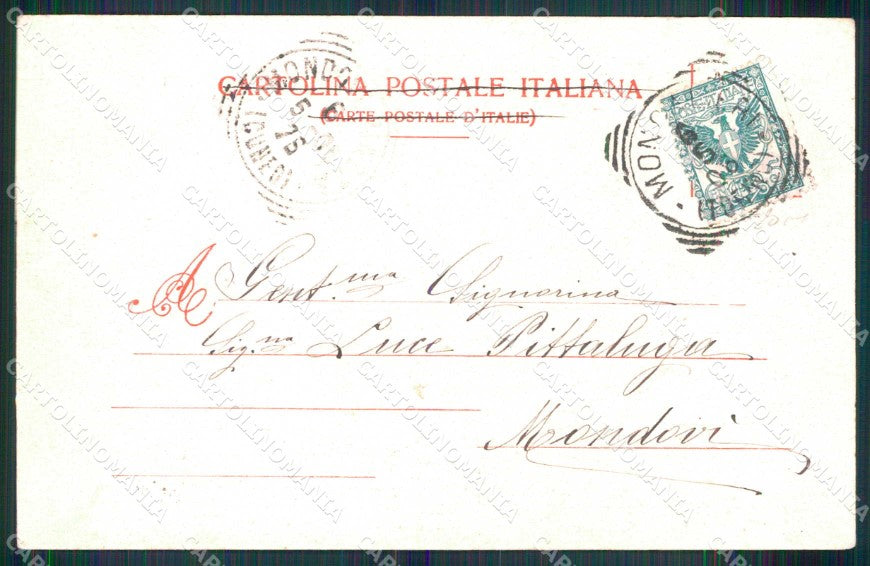 CARTOLINA POSTALE ITALIANA
(CARTE POSTALE D'ITALIE)
A Gent.ma Signorina
Sig.na Luce Pittaluga
Mondovì
CARTOLINOMANIA